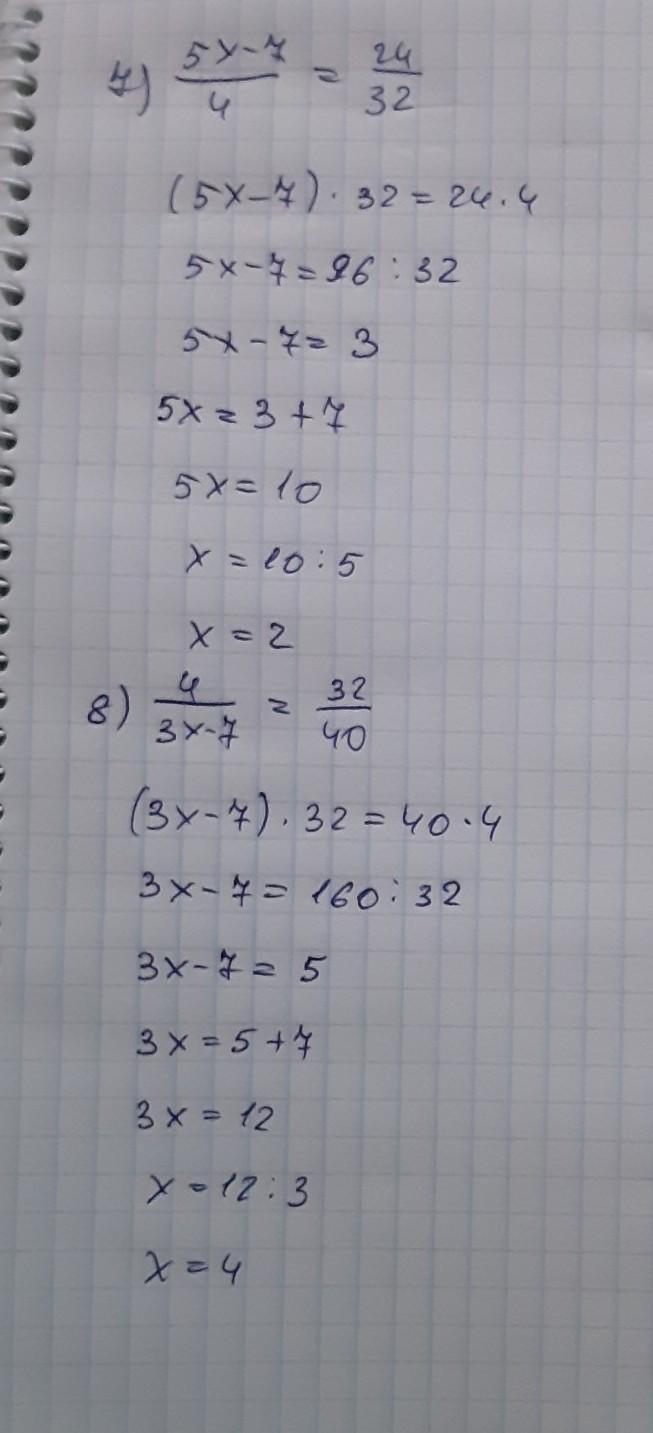 7) (5x-7)/4 = 24/32
(5x-7)·32=24·4
5x-7=96:32
5x-7=3
5x=3+7
5x=10
x=10:5
x=2
8) 4/(3x-7) = 32/40
(3x-7)·32=40·4
3x-7=160:32
3x-7=5
3x=5+7
3x=12
x=12:3
x=4